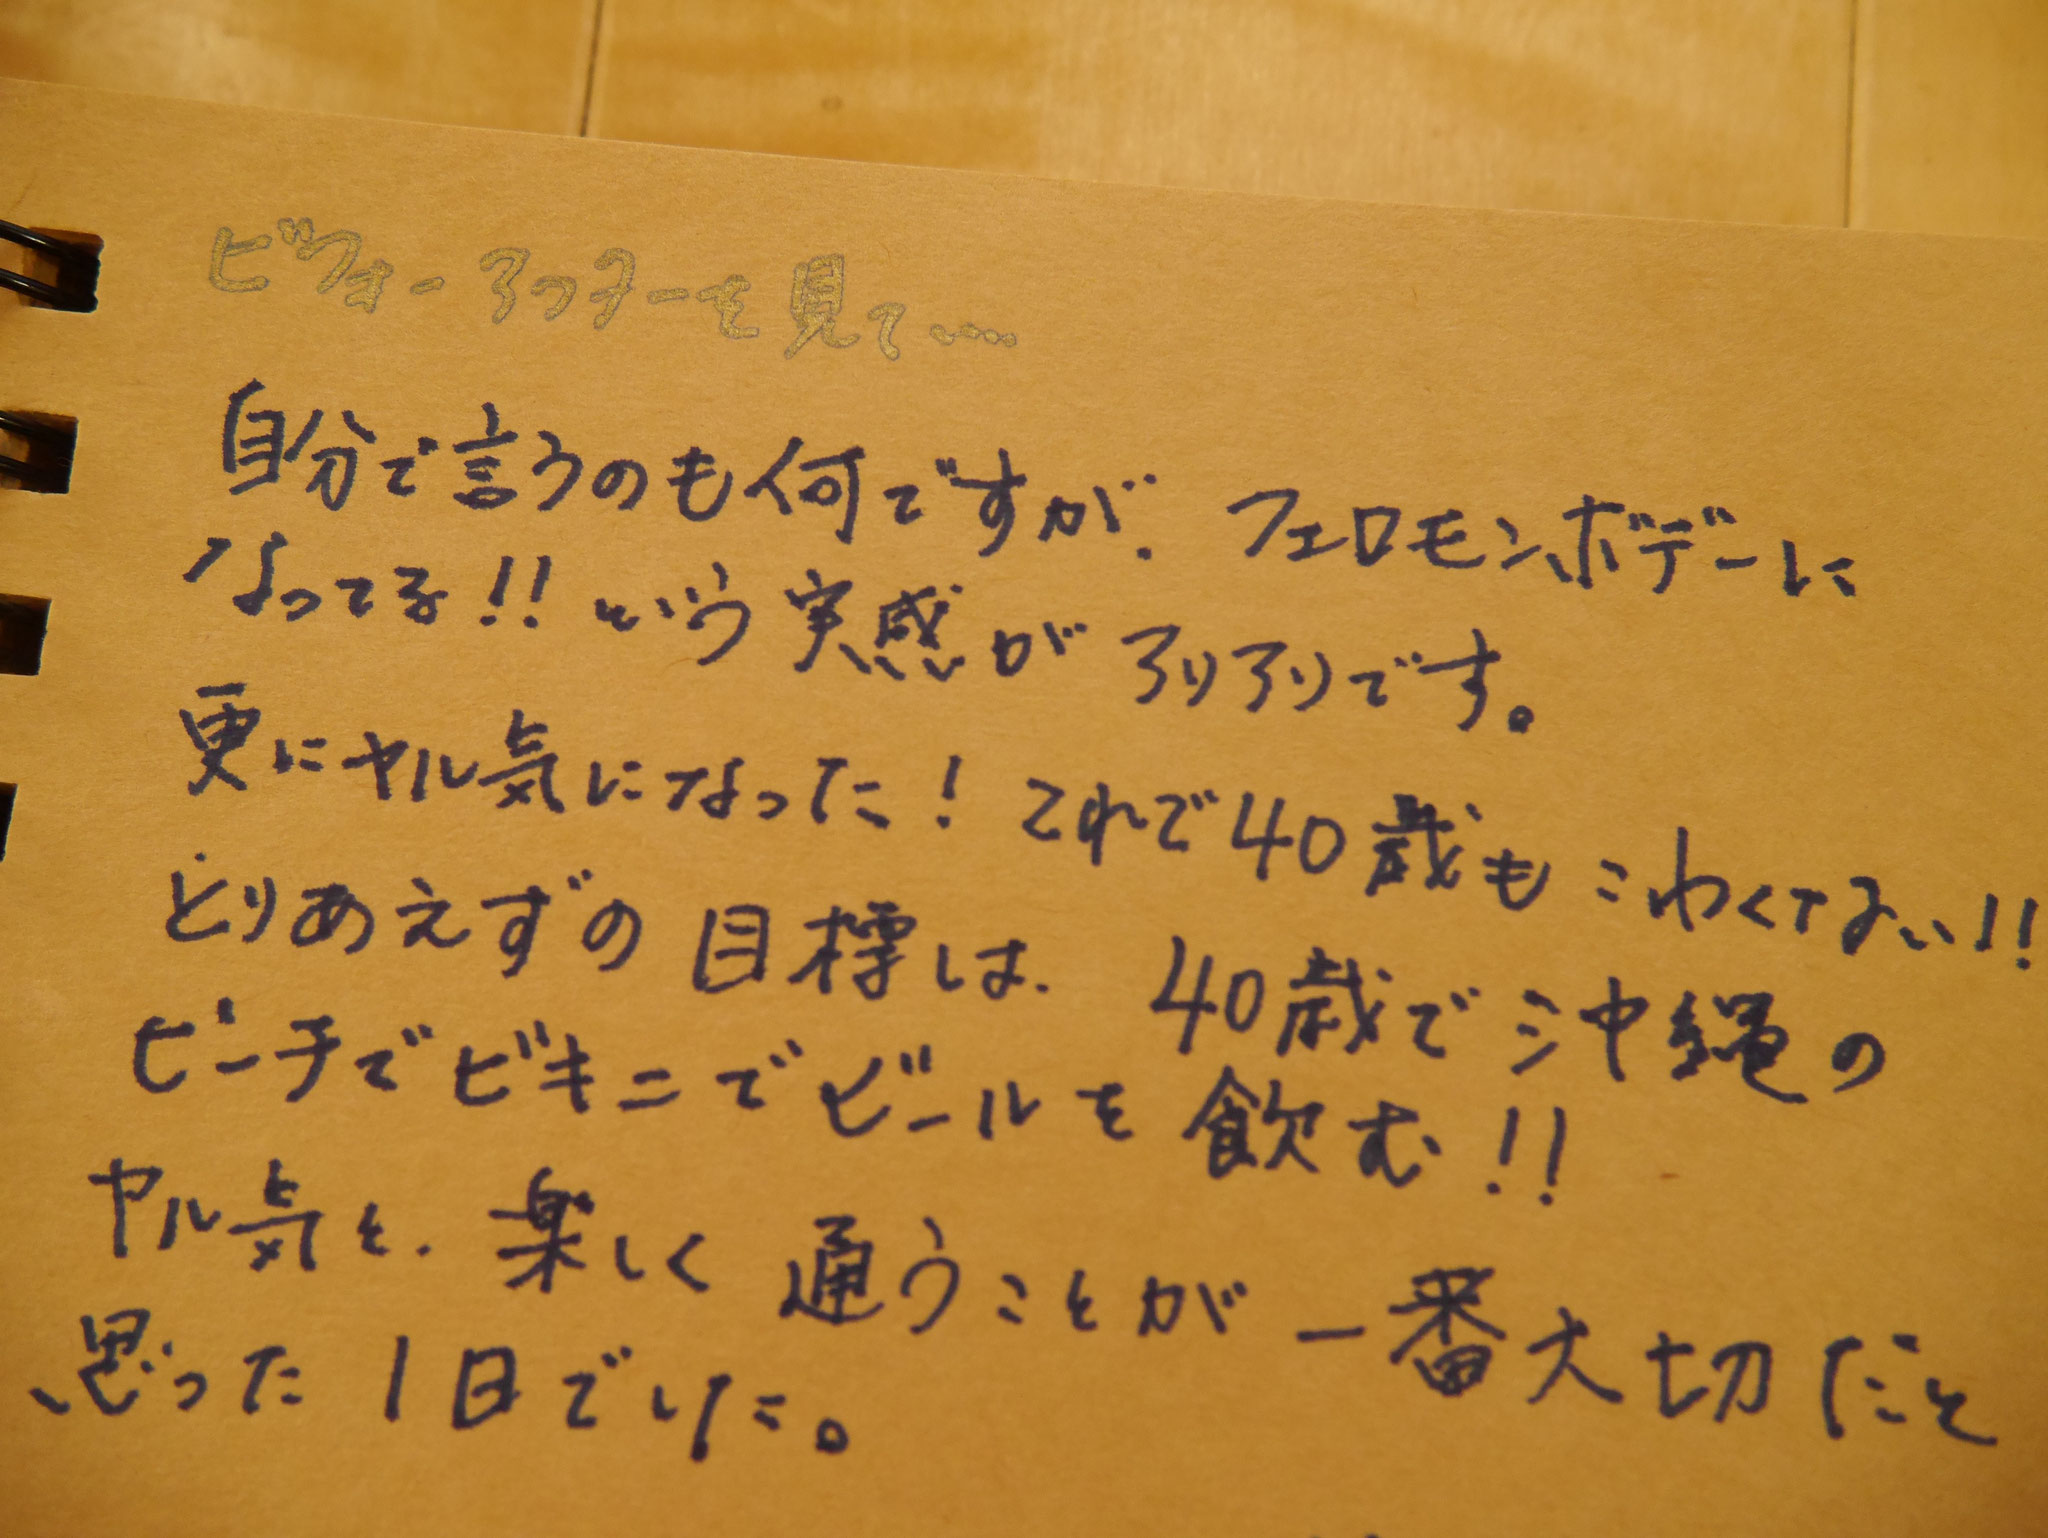 ビフォーアフターを見て…
自分で言うのも何ですが、フェロモンボデーに
なってる!! という実感がアリアリです。
更にヤル気になった! これで40歳もこわくない!!
とりあえずの目標は、40歳で沖縄の
ビーチでビキニでビールを飲む!!
ヤル気と、楽しく通うことが一番大切だと
思った1日でした。